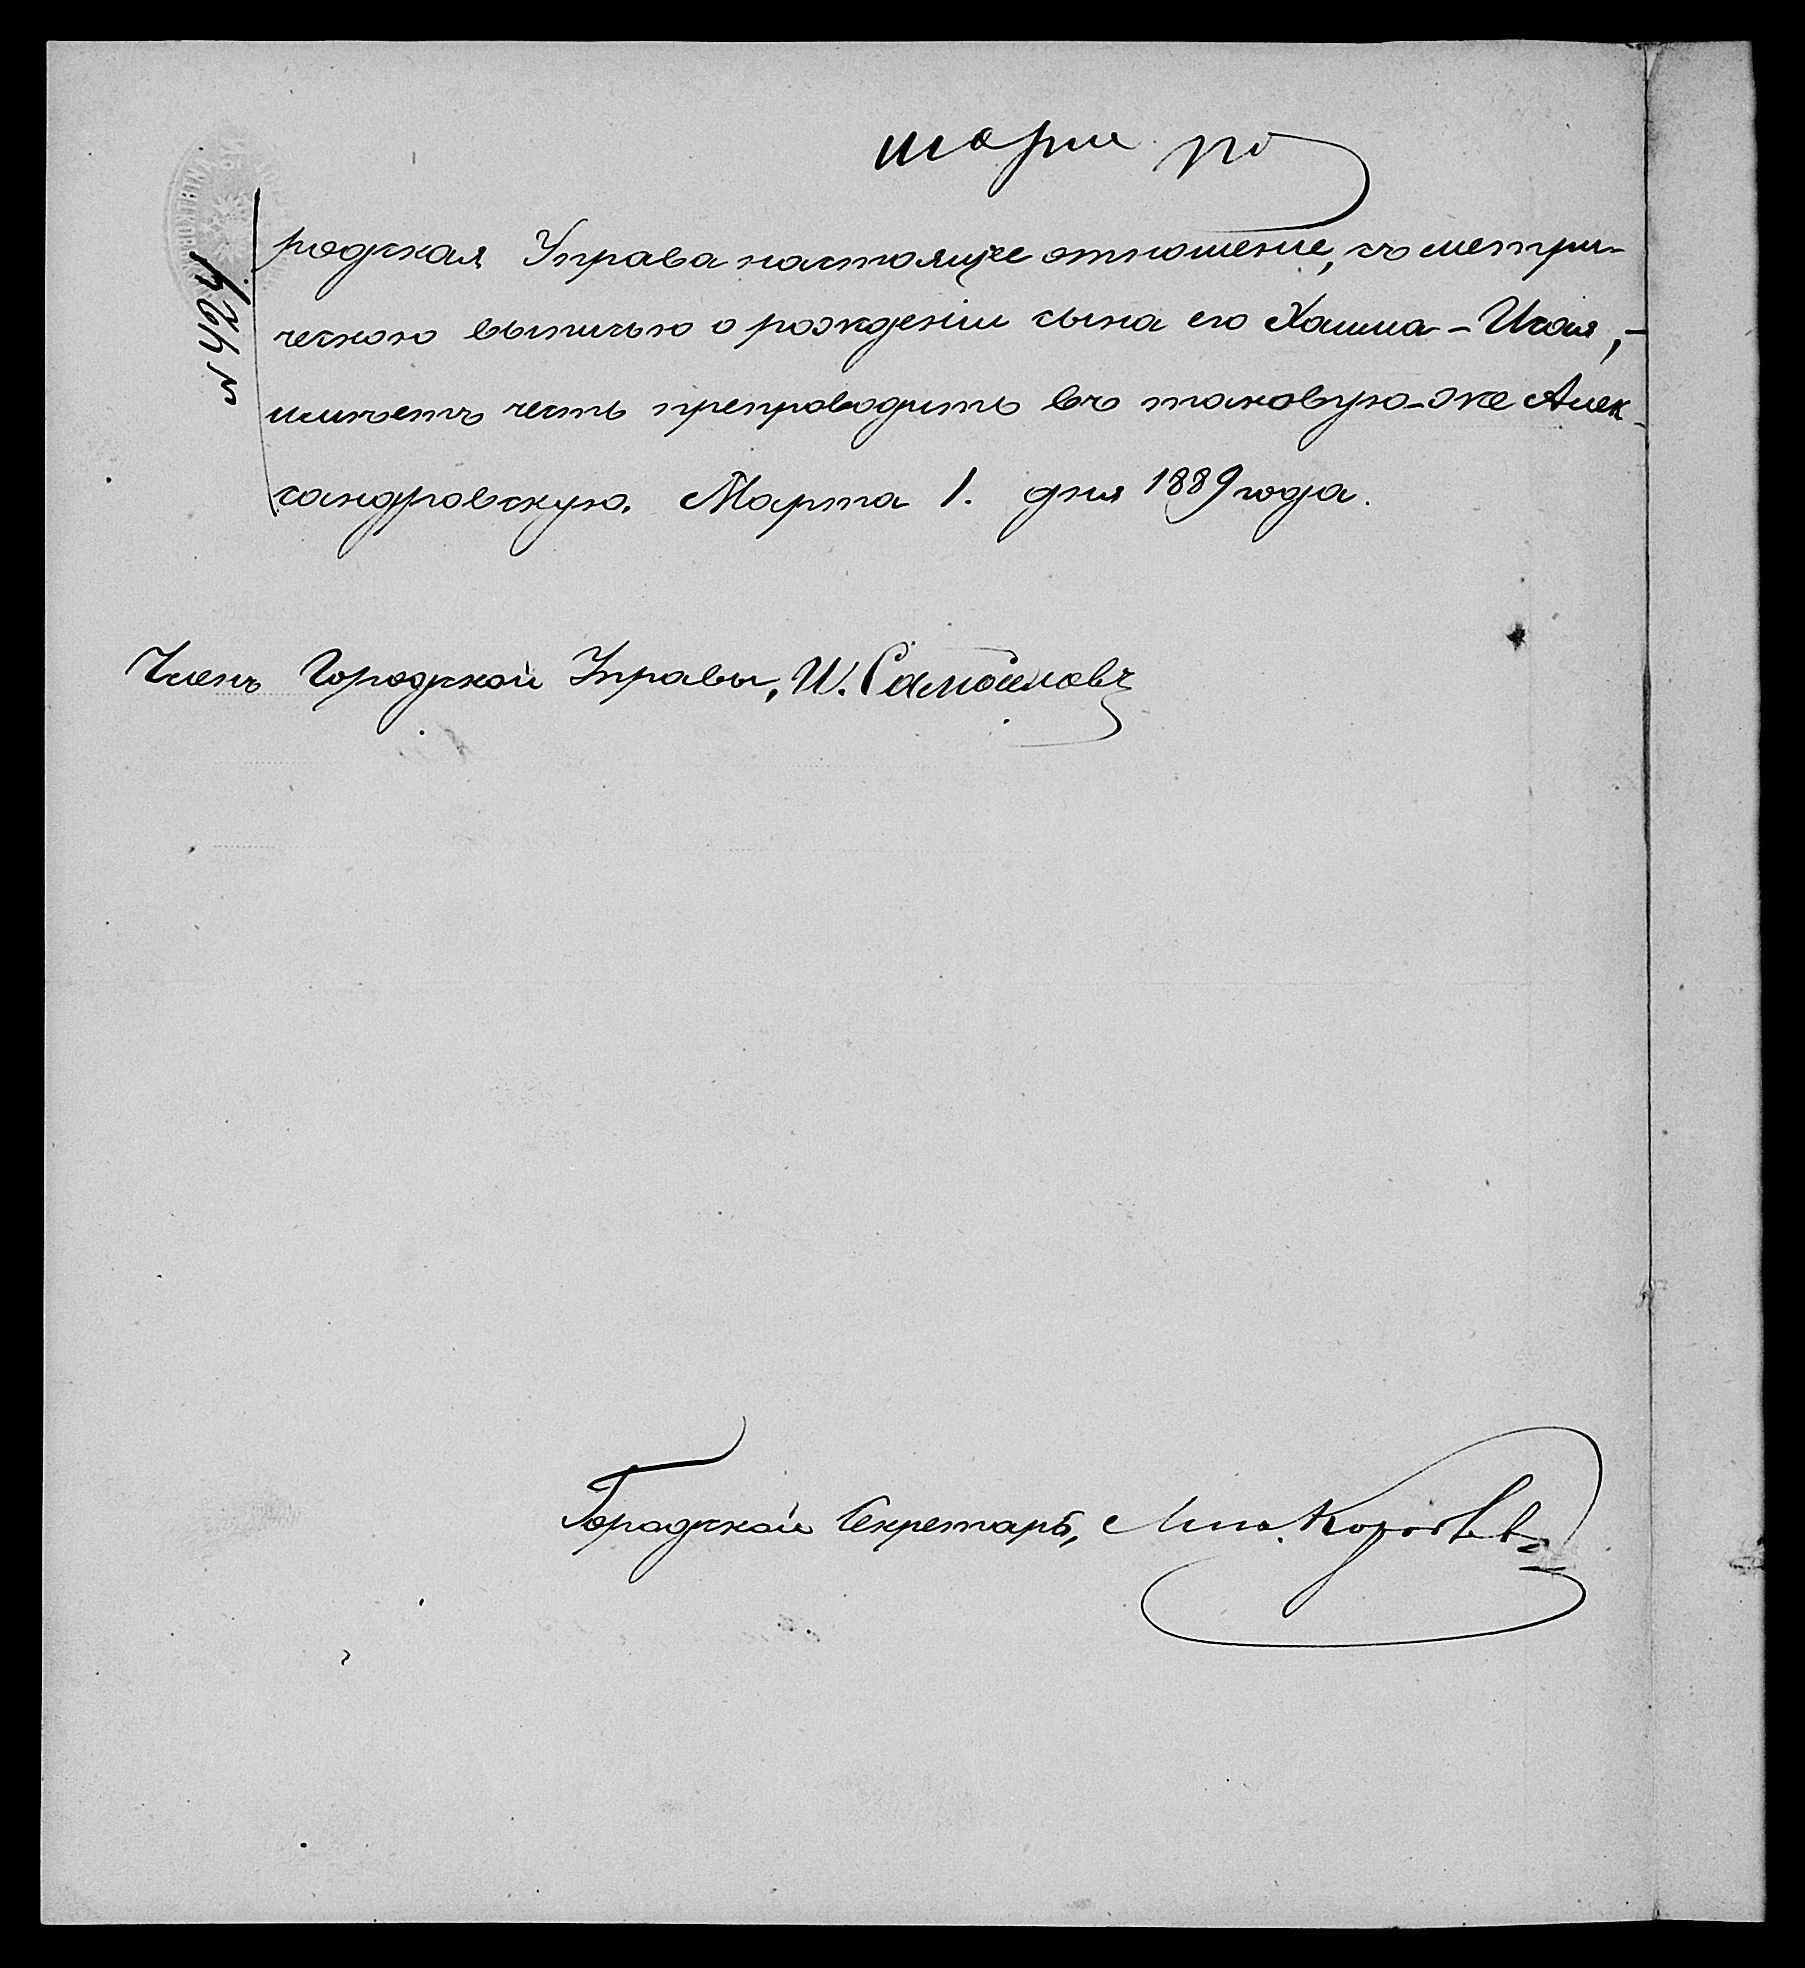 родская Управа настоящее отношение, съ метри-
ческою выписью о рожденіи сына его Хаима-Исая,-
имѣетъ честь препроводить въ таковую-же Алек-
сандровскую. Марта 1. дня 1889 года.
№ 424
Членъ Городской Управы, И. Самойловъ
Городской Секретарь,